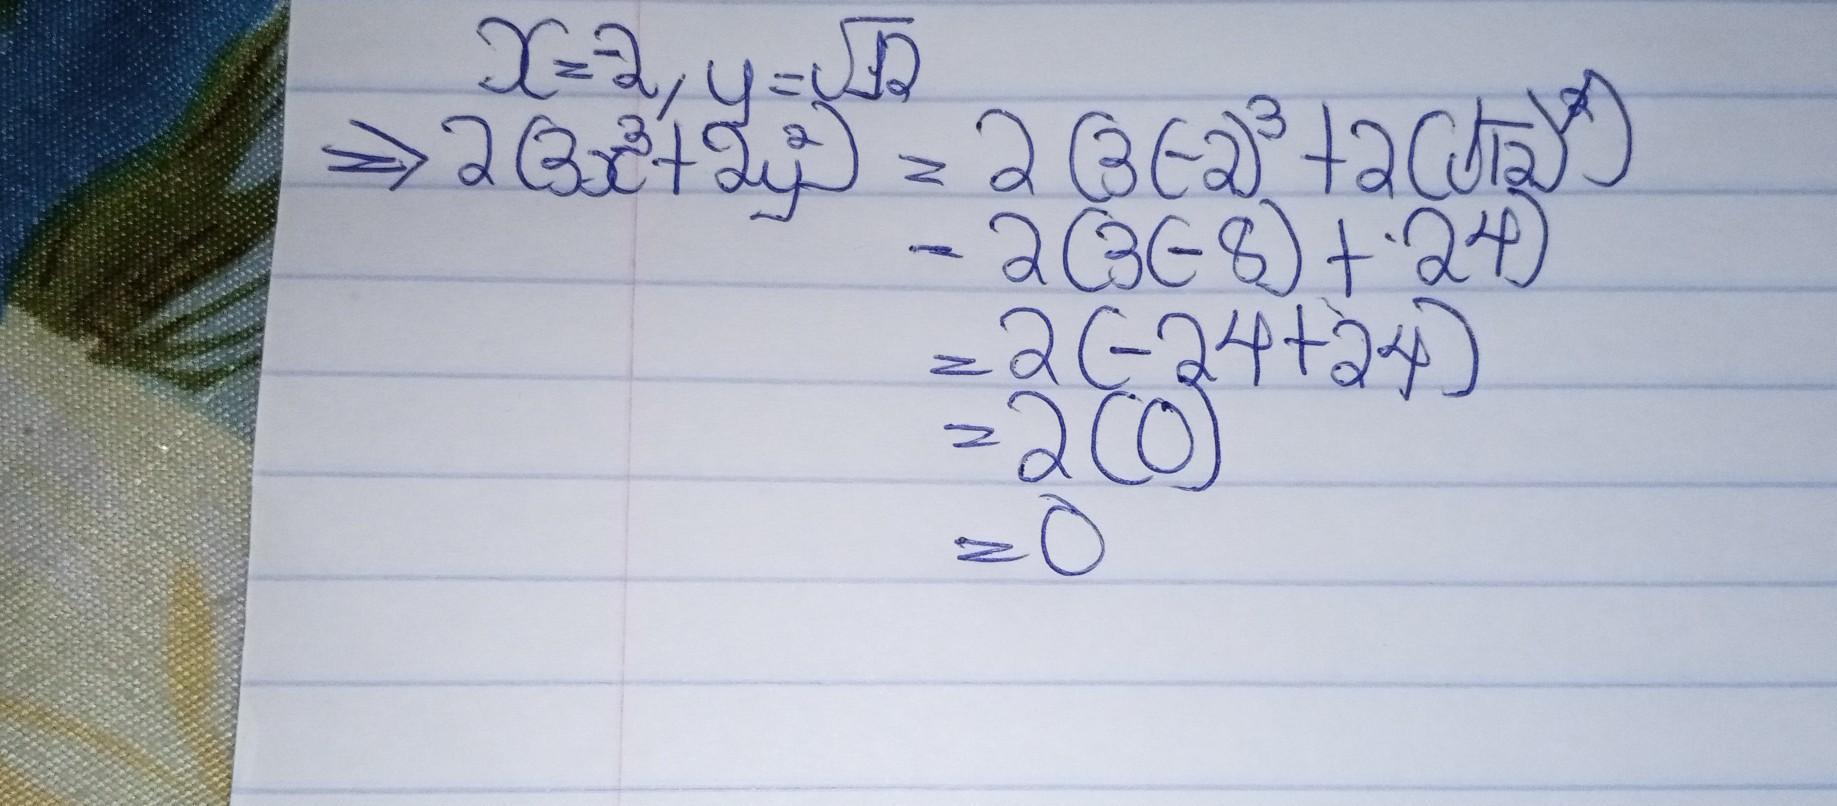 x=-2, y=√12
⇒ 2(3x³+2y²) = 2(3(-2)³+2(√12)²)
- 2(3(-8)+24)
= 2(-24+24)
= 2(0)
= 0